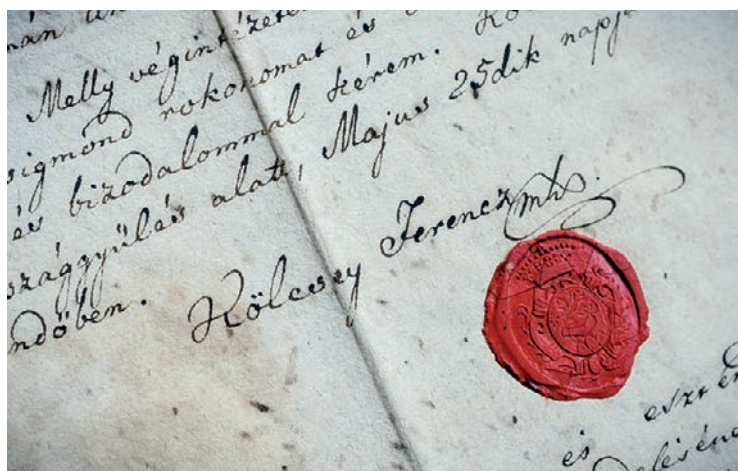 Melly végintézete
sigmond rokonomat és
és bizodalommal kérem.
szággyülés alatt, Majus 25dik napj
ndőben. Kölcsey Ferencz mk.
és eszten